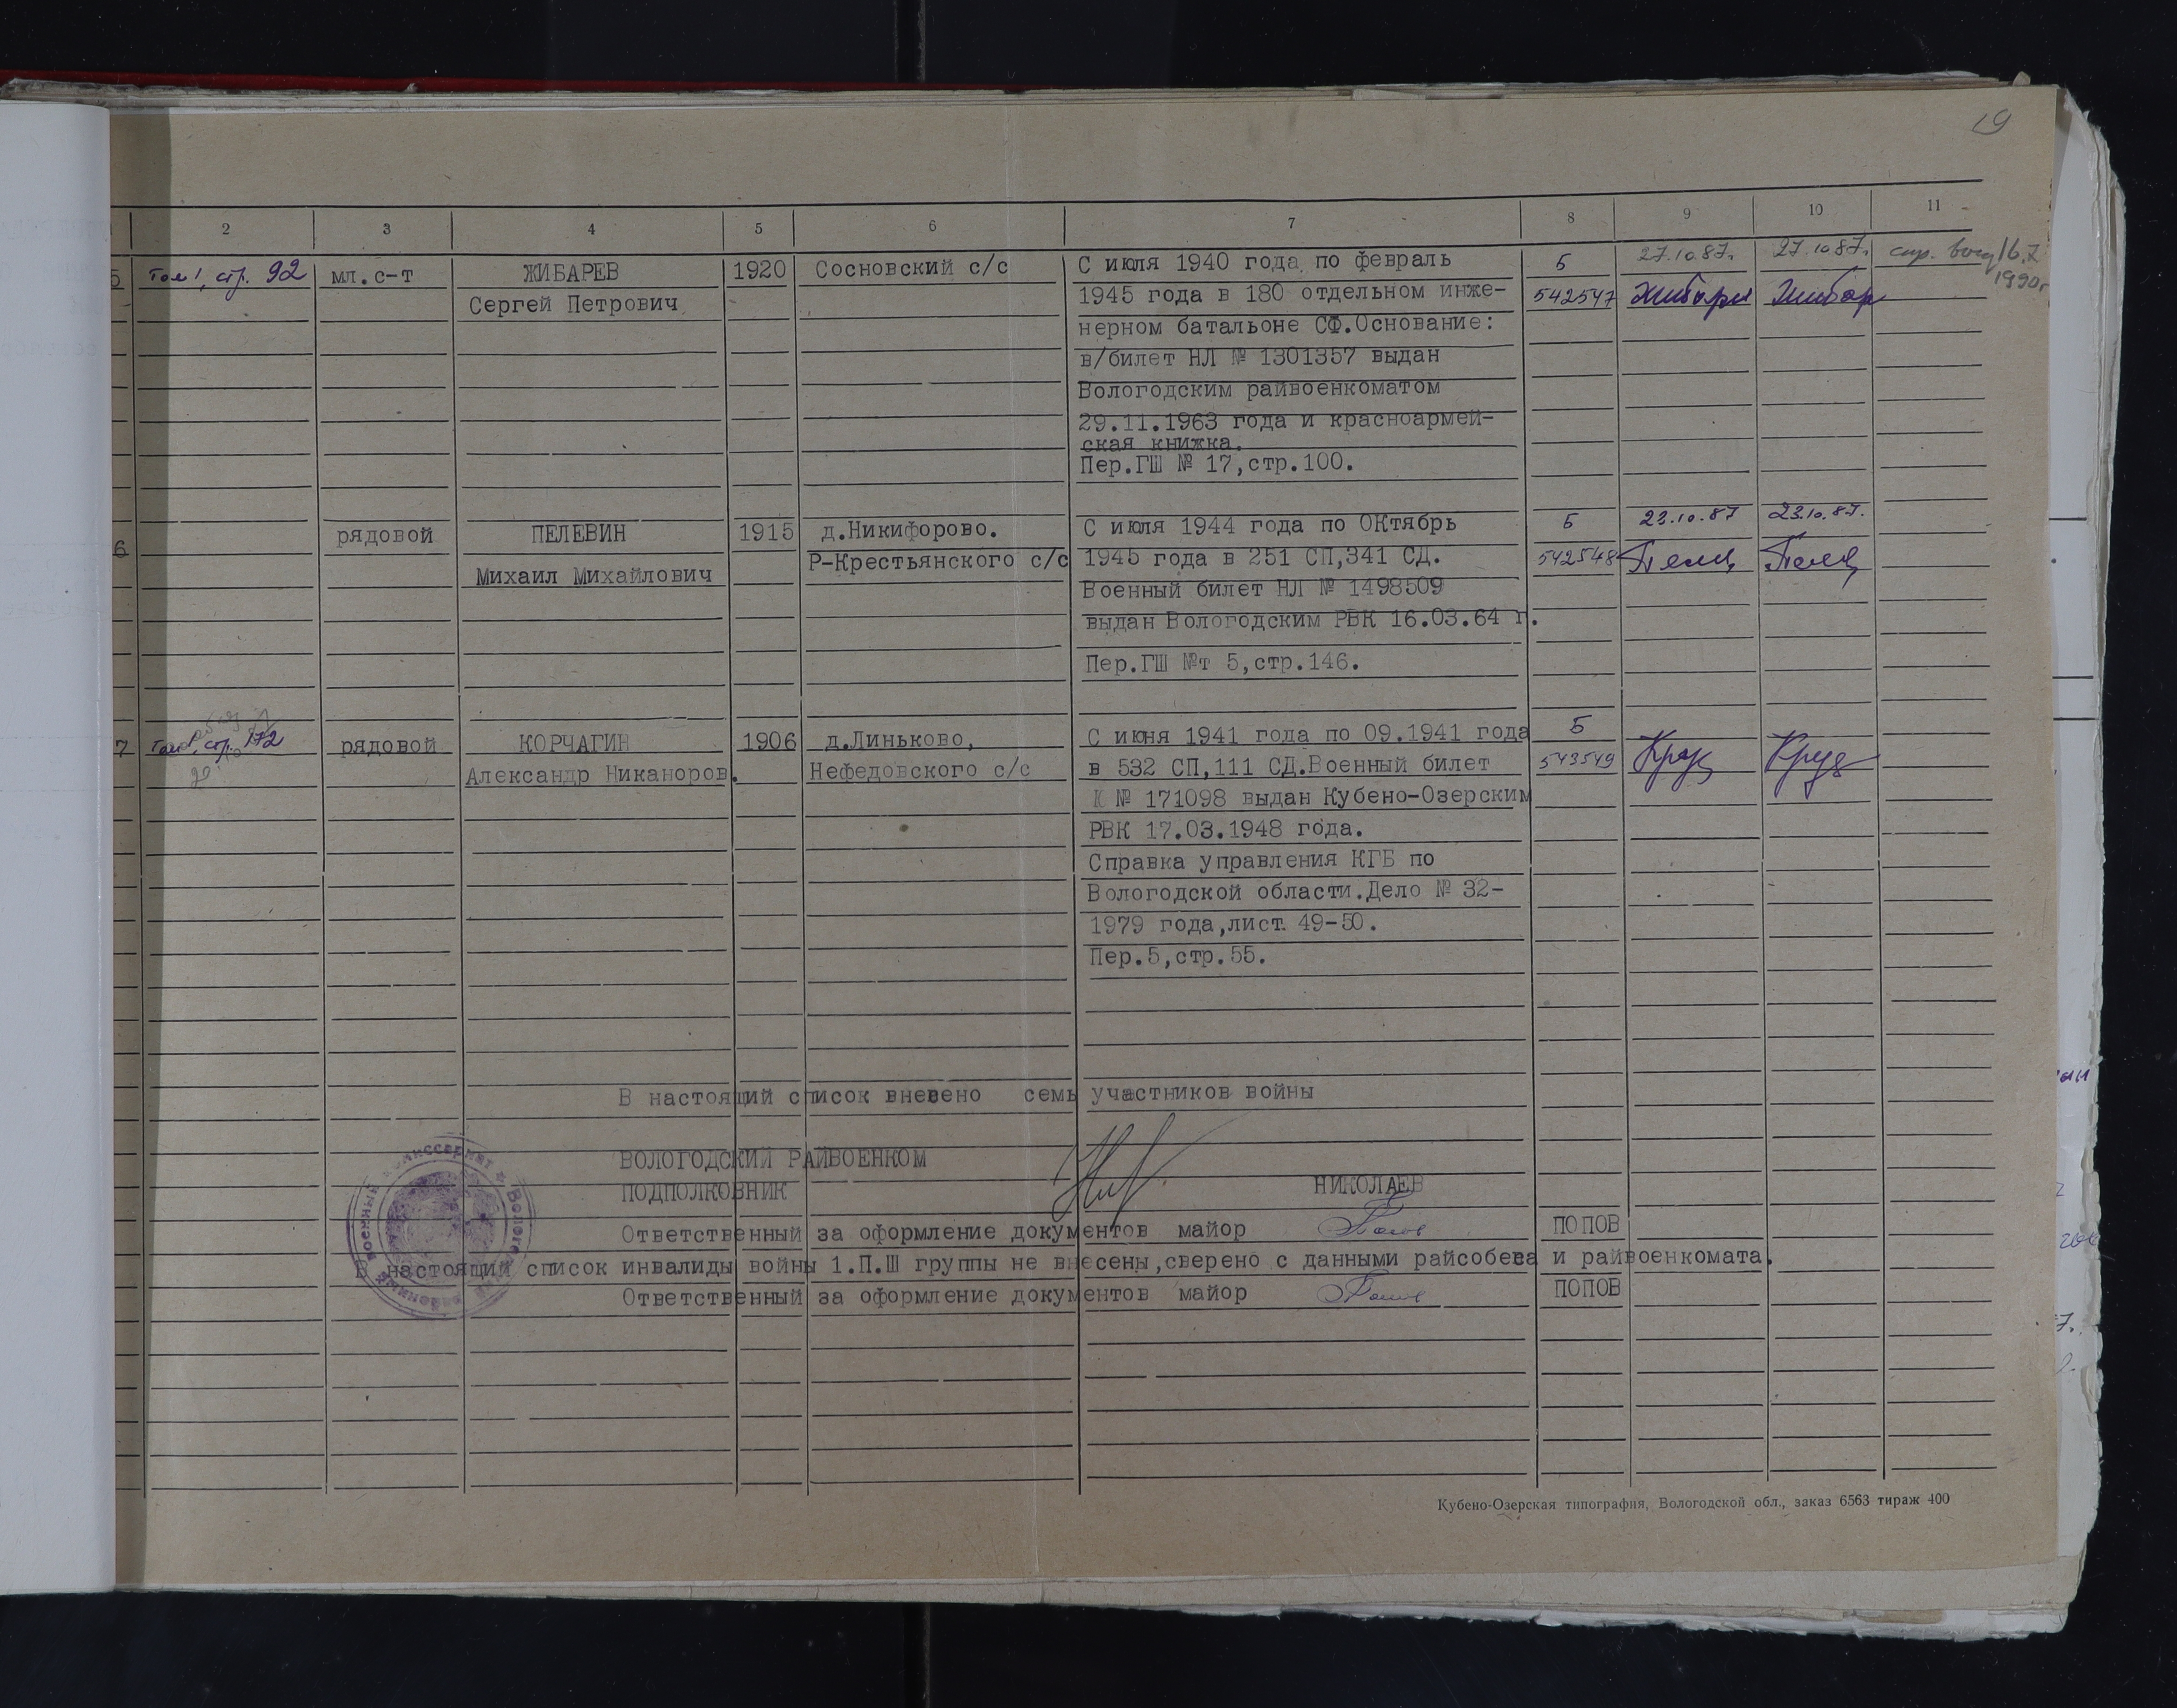 19
2 3 4 5 6 7 8 9 10 11
5 Том 1, стр. 92 мл.с-т ЖИБАРЕВ 1920 Сосновский с/с С июля 1940 года по февраль 5 27.10.87г. 27.10.87г. 16.7
Сергей Петрович 1945 года в 180 отдельном инже- 542547 1990г
нерном батальоне СФ.Основание:
в/билет НЛ № 1301357 выдан
Вологодским райвоенкоматом
29.11.1963 года и красноармей-
ская книжка.
Пер.ГШ № 17,стр.100.
6 рядовой ПЕЛЕВИН 1915 д.Никифорово. С июля 1944 года по ОКтябрь 5 23.10.87 23.10.87.
Михаил Михайлович Р-Крестьянского с/с 1945 года в 251 СП,341 СД. 542548
Военный билет НЛ № 1498509
выдан Вологодским РВК 16.03.64 г.
Пер.ГШ №т 5,стр.146.
7 Том 1, стр. 172 рядовой КОРЧАГИН 1906 д.Линьково, С июня 1941 года по 09.1941 года 5
Александр Никаноров. Нефедовского с/с в 532 СП,111 СД.Военный билет 543549
№ 171098 выдан Кубено-Озерским
РВК 17.03.1948 года.
Справка управления КГБ по
Вологодской области.Дело № 32-
1979 года,лист. 49-50.
Пер.5,стр.55.
В настоящий список внесено семь участников войны
ВОЛОГОДСКИЙ РАЙВОЕНКОМ
ПОДПОЛКОВНИК НИКОЛАЕВ
Ответственный за оформление документов майор ПОПОВ
В настоящий список инвалиды войны 1.П.Ш группы не внесены,сверено с данными райсобеса и райвоенкомата.
Ответственный за оформление документов майор ПОПОВ
Кубено-Озерская типография, Вологодской обл., заказ 6563 тираж 400